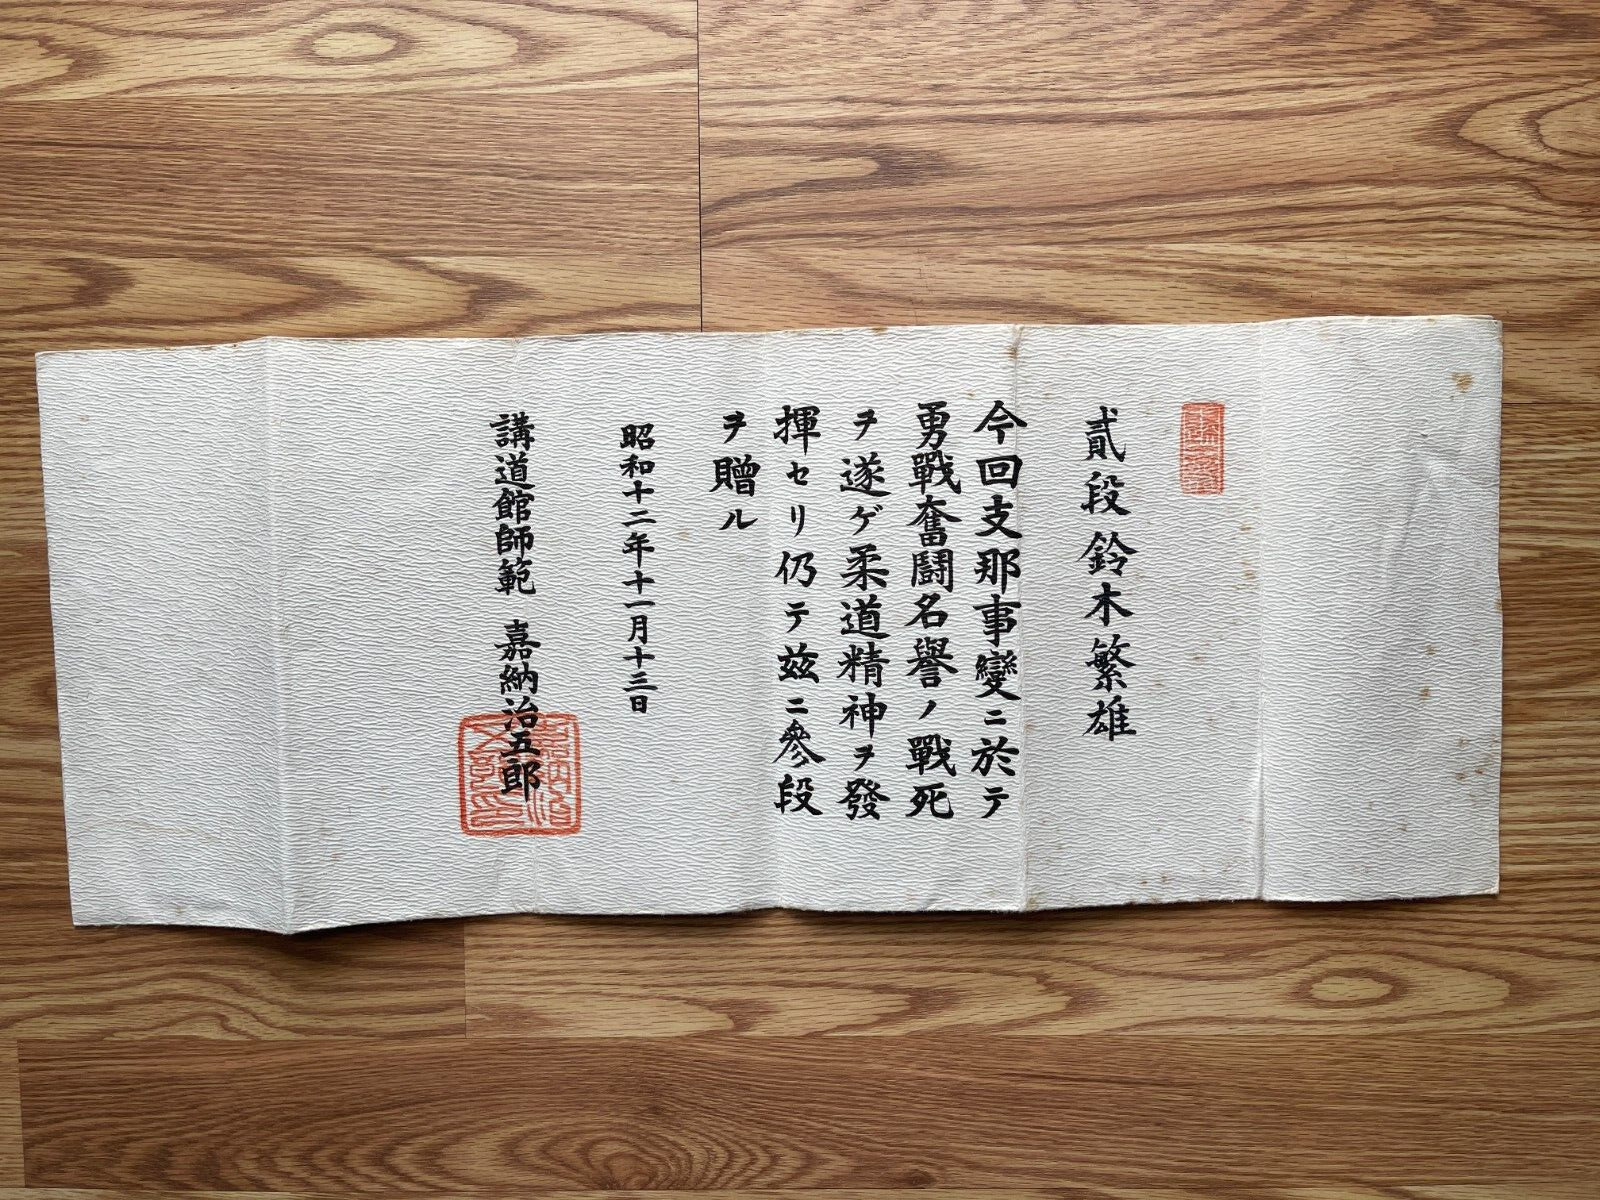 貳段 鈴木繁雄
今回支那事變ニ於テ
勇戰奮鬪名譽ノ戰死
ヲ遂ゲ柔道精神ヲ發
揮セリ仍テ玆ニ參段
ヲ贈ル
昭和十二年十一月十三日
講道館師範 嘉納治五郎